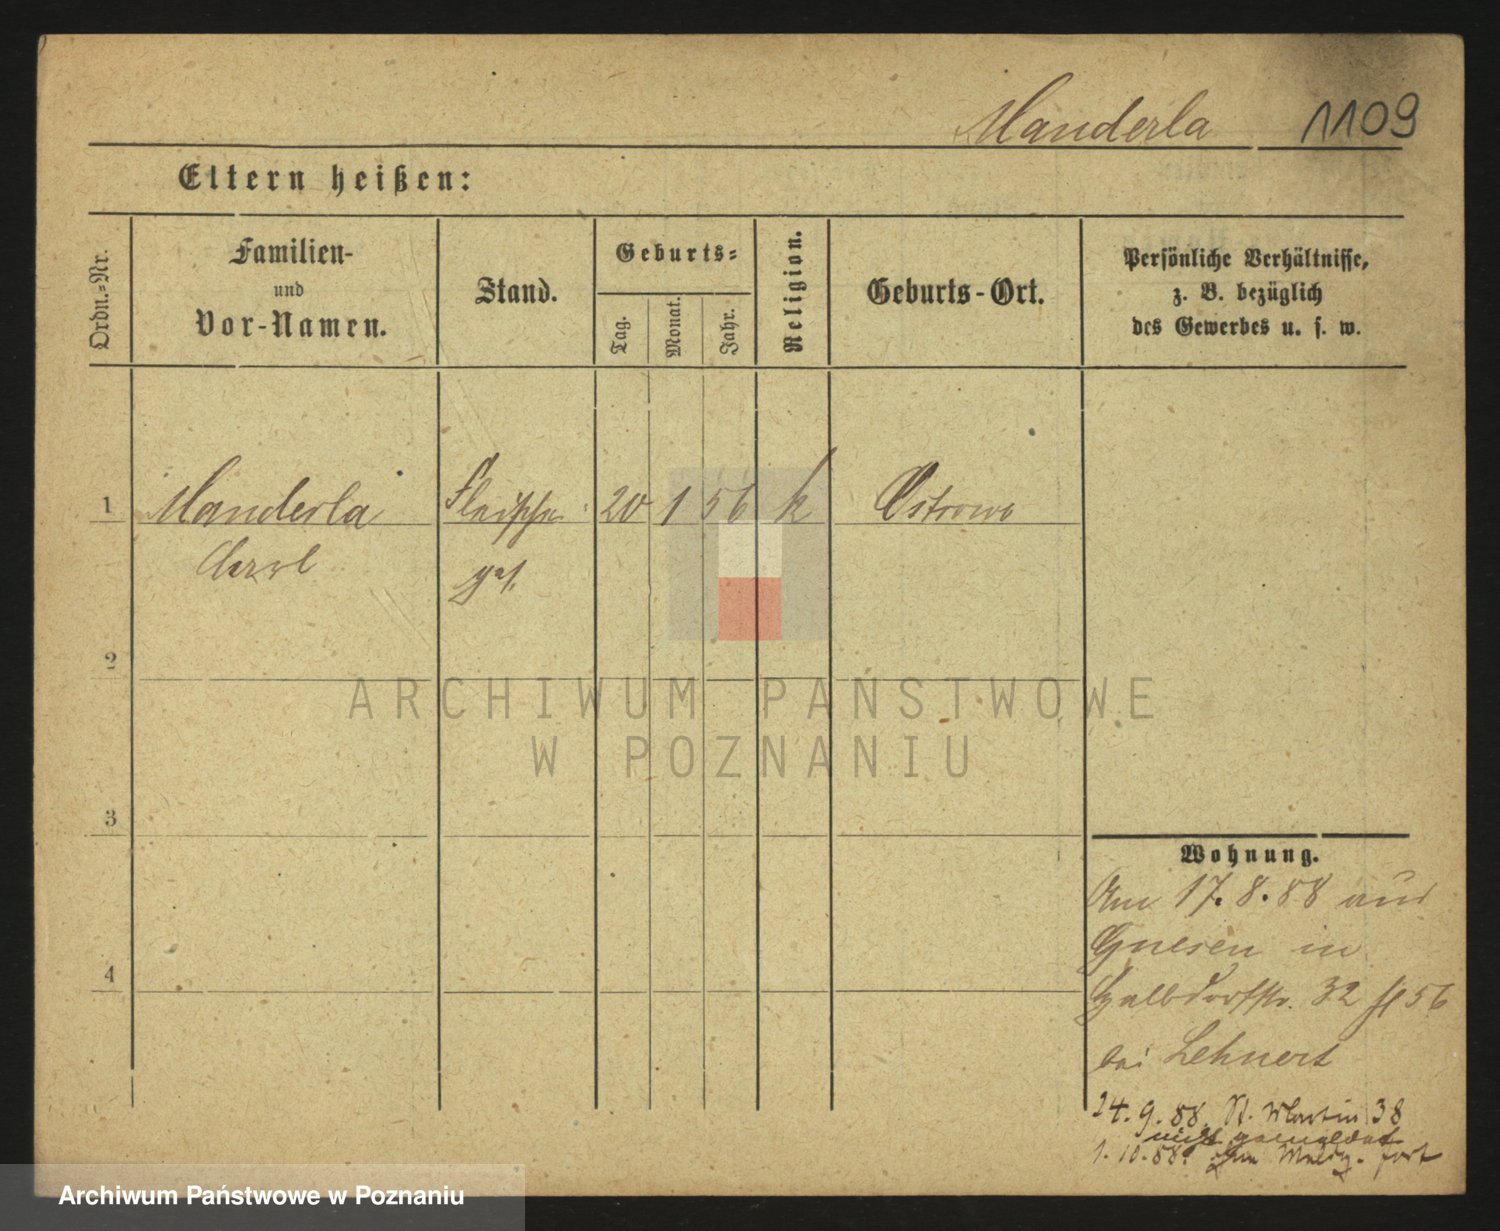 Manderla 1109
Eltern heißen:
Ordn.=Nr.
Familien-
und
Vor-Namen.
Stand.
Geburts=
Tag.
Monat.
Jahr.
Religion.
Geburts-Ort.
Persönliche Verhältnisse,
z. B. bezüglich
des Gewerbes u. s. w.
1 Manderla Fleischer 20 1 56 k Ostrowo
Carl ges.
2
ARCHIWUM PAŃSTWOWE
W POZNANIU
3
Wohnung.
Am 17.8.88 aus
Gnesen in
Halbdorfstr. 32
bei Lehnert
4
24.9.88. St. Martin 38
nicht gemeldet
1.10.88. ohne Meldg. fort
Archiwum Państwowe w Poznaniu